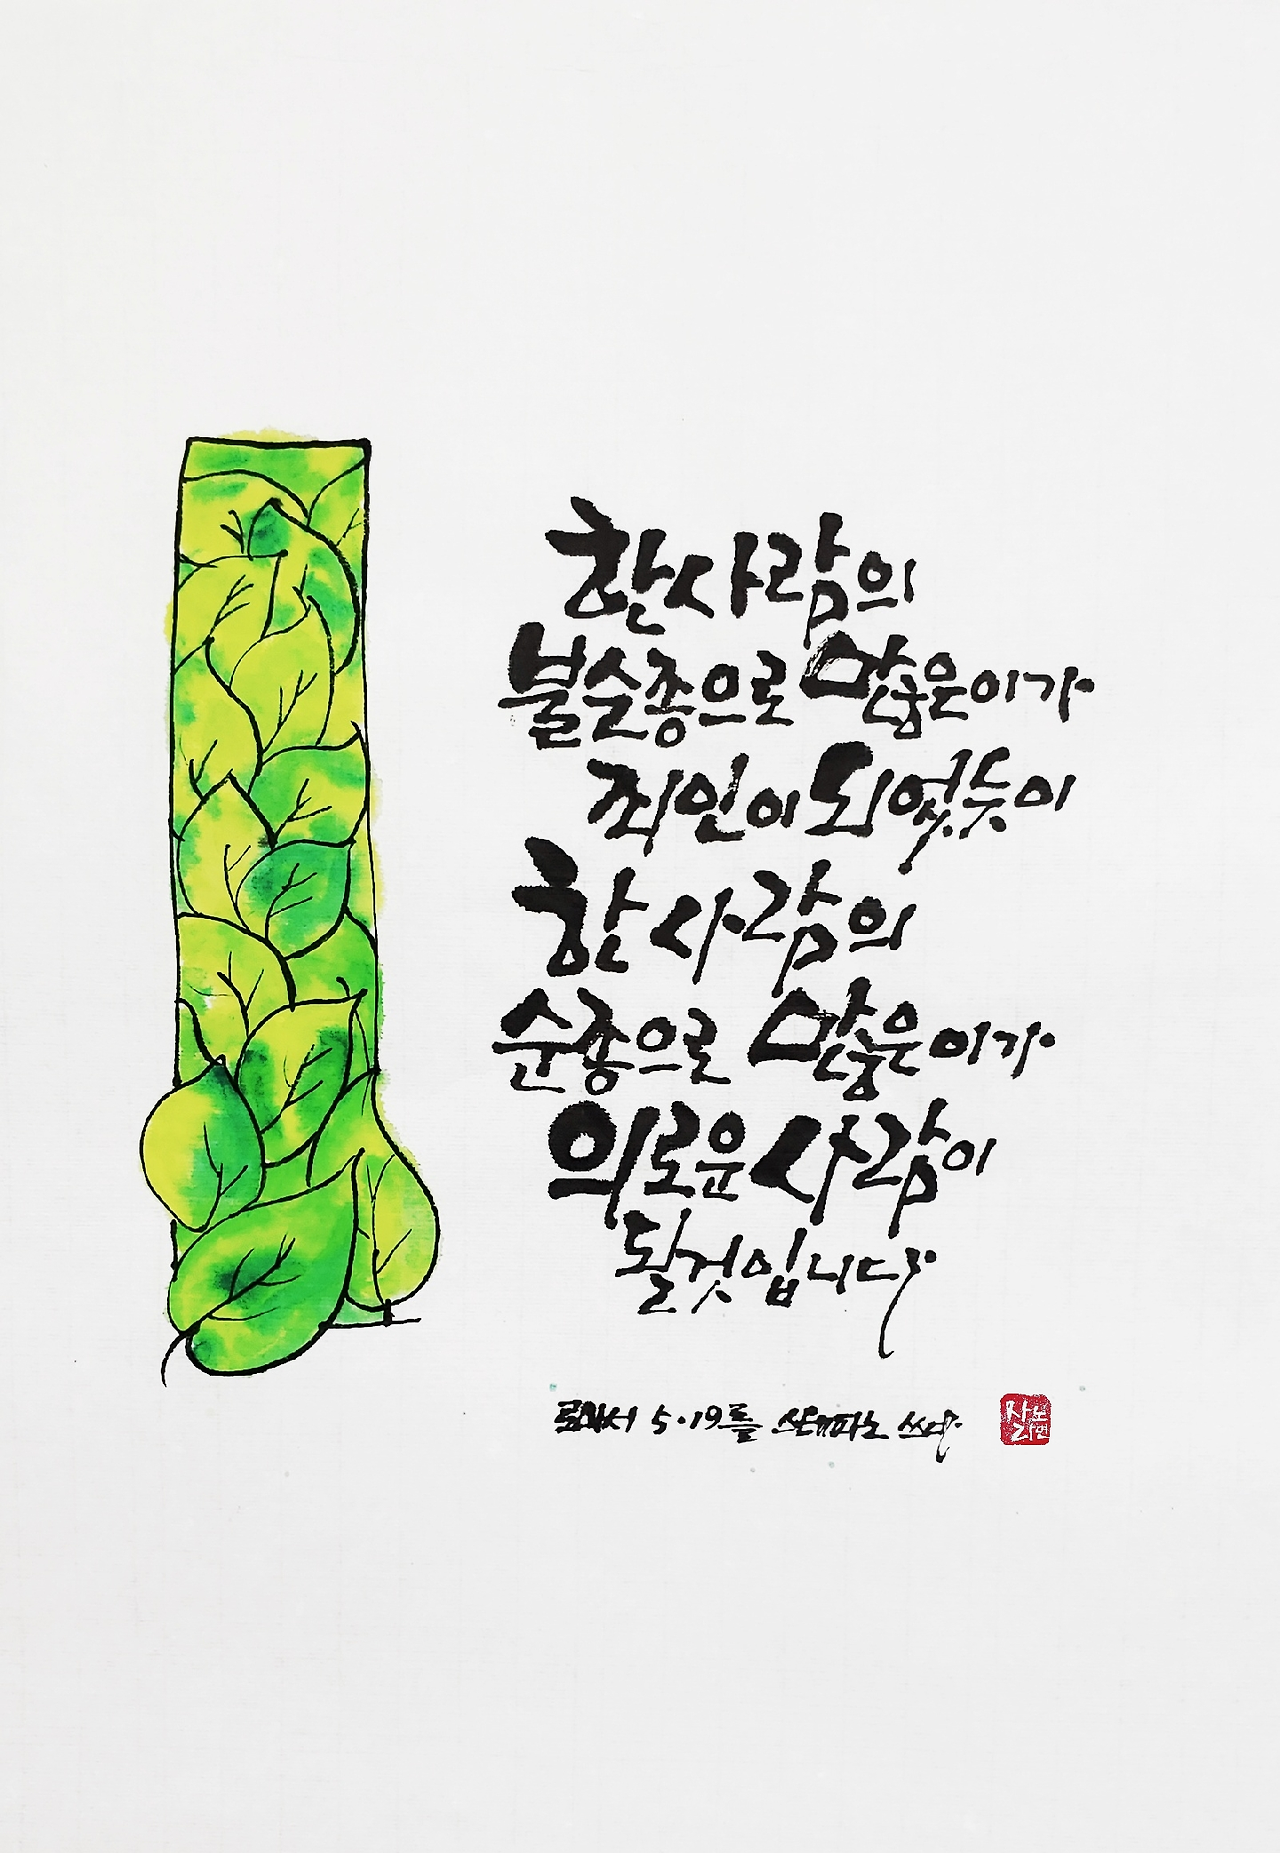 한 사람의
불순종으로 많은 이가
죄인이 되었듯이
한 사람의
순종으로 많은 이가
의로운 사람이
될 것입니다
로마서 5.19를 스테파노 쓰다